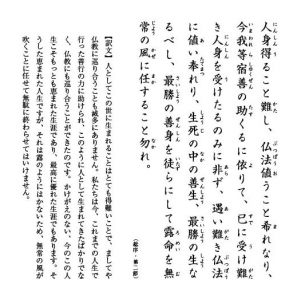 人身得ること難し、仏法値うこと希れなり、
今我等宿善の助くるに依りて、已に受け難
き人身を受けたるのみに非ず、遇い難き仏法
に値い奉れり、生死の中の善生、最勝の生な
るべし、最勝の善身を徒らにして露命を無
常の風に任すること勿れ。
(総序・第二節)
【訳文】人としてこの世に生まれることはとても得難いことで、ましてや
仏教に巡り合うことも滅多にありません。私たちは今、これまでの人生で
行った善行の力に助けられ、このように人として生まれてきたばかりでな
く、仏教にも巡り合うことができたのです。かけがえのない、今のこの人
生こそもっとも恵まれた生涯であり、最高に優れた生涯でもあります。そ
うした恵まれた人生ですが、それは露のようにはかないため、無常の風が
吹くことに任せて無駄に終わらせてはいけません。